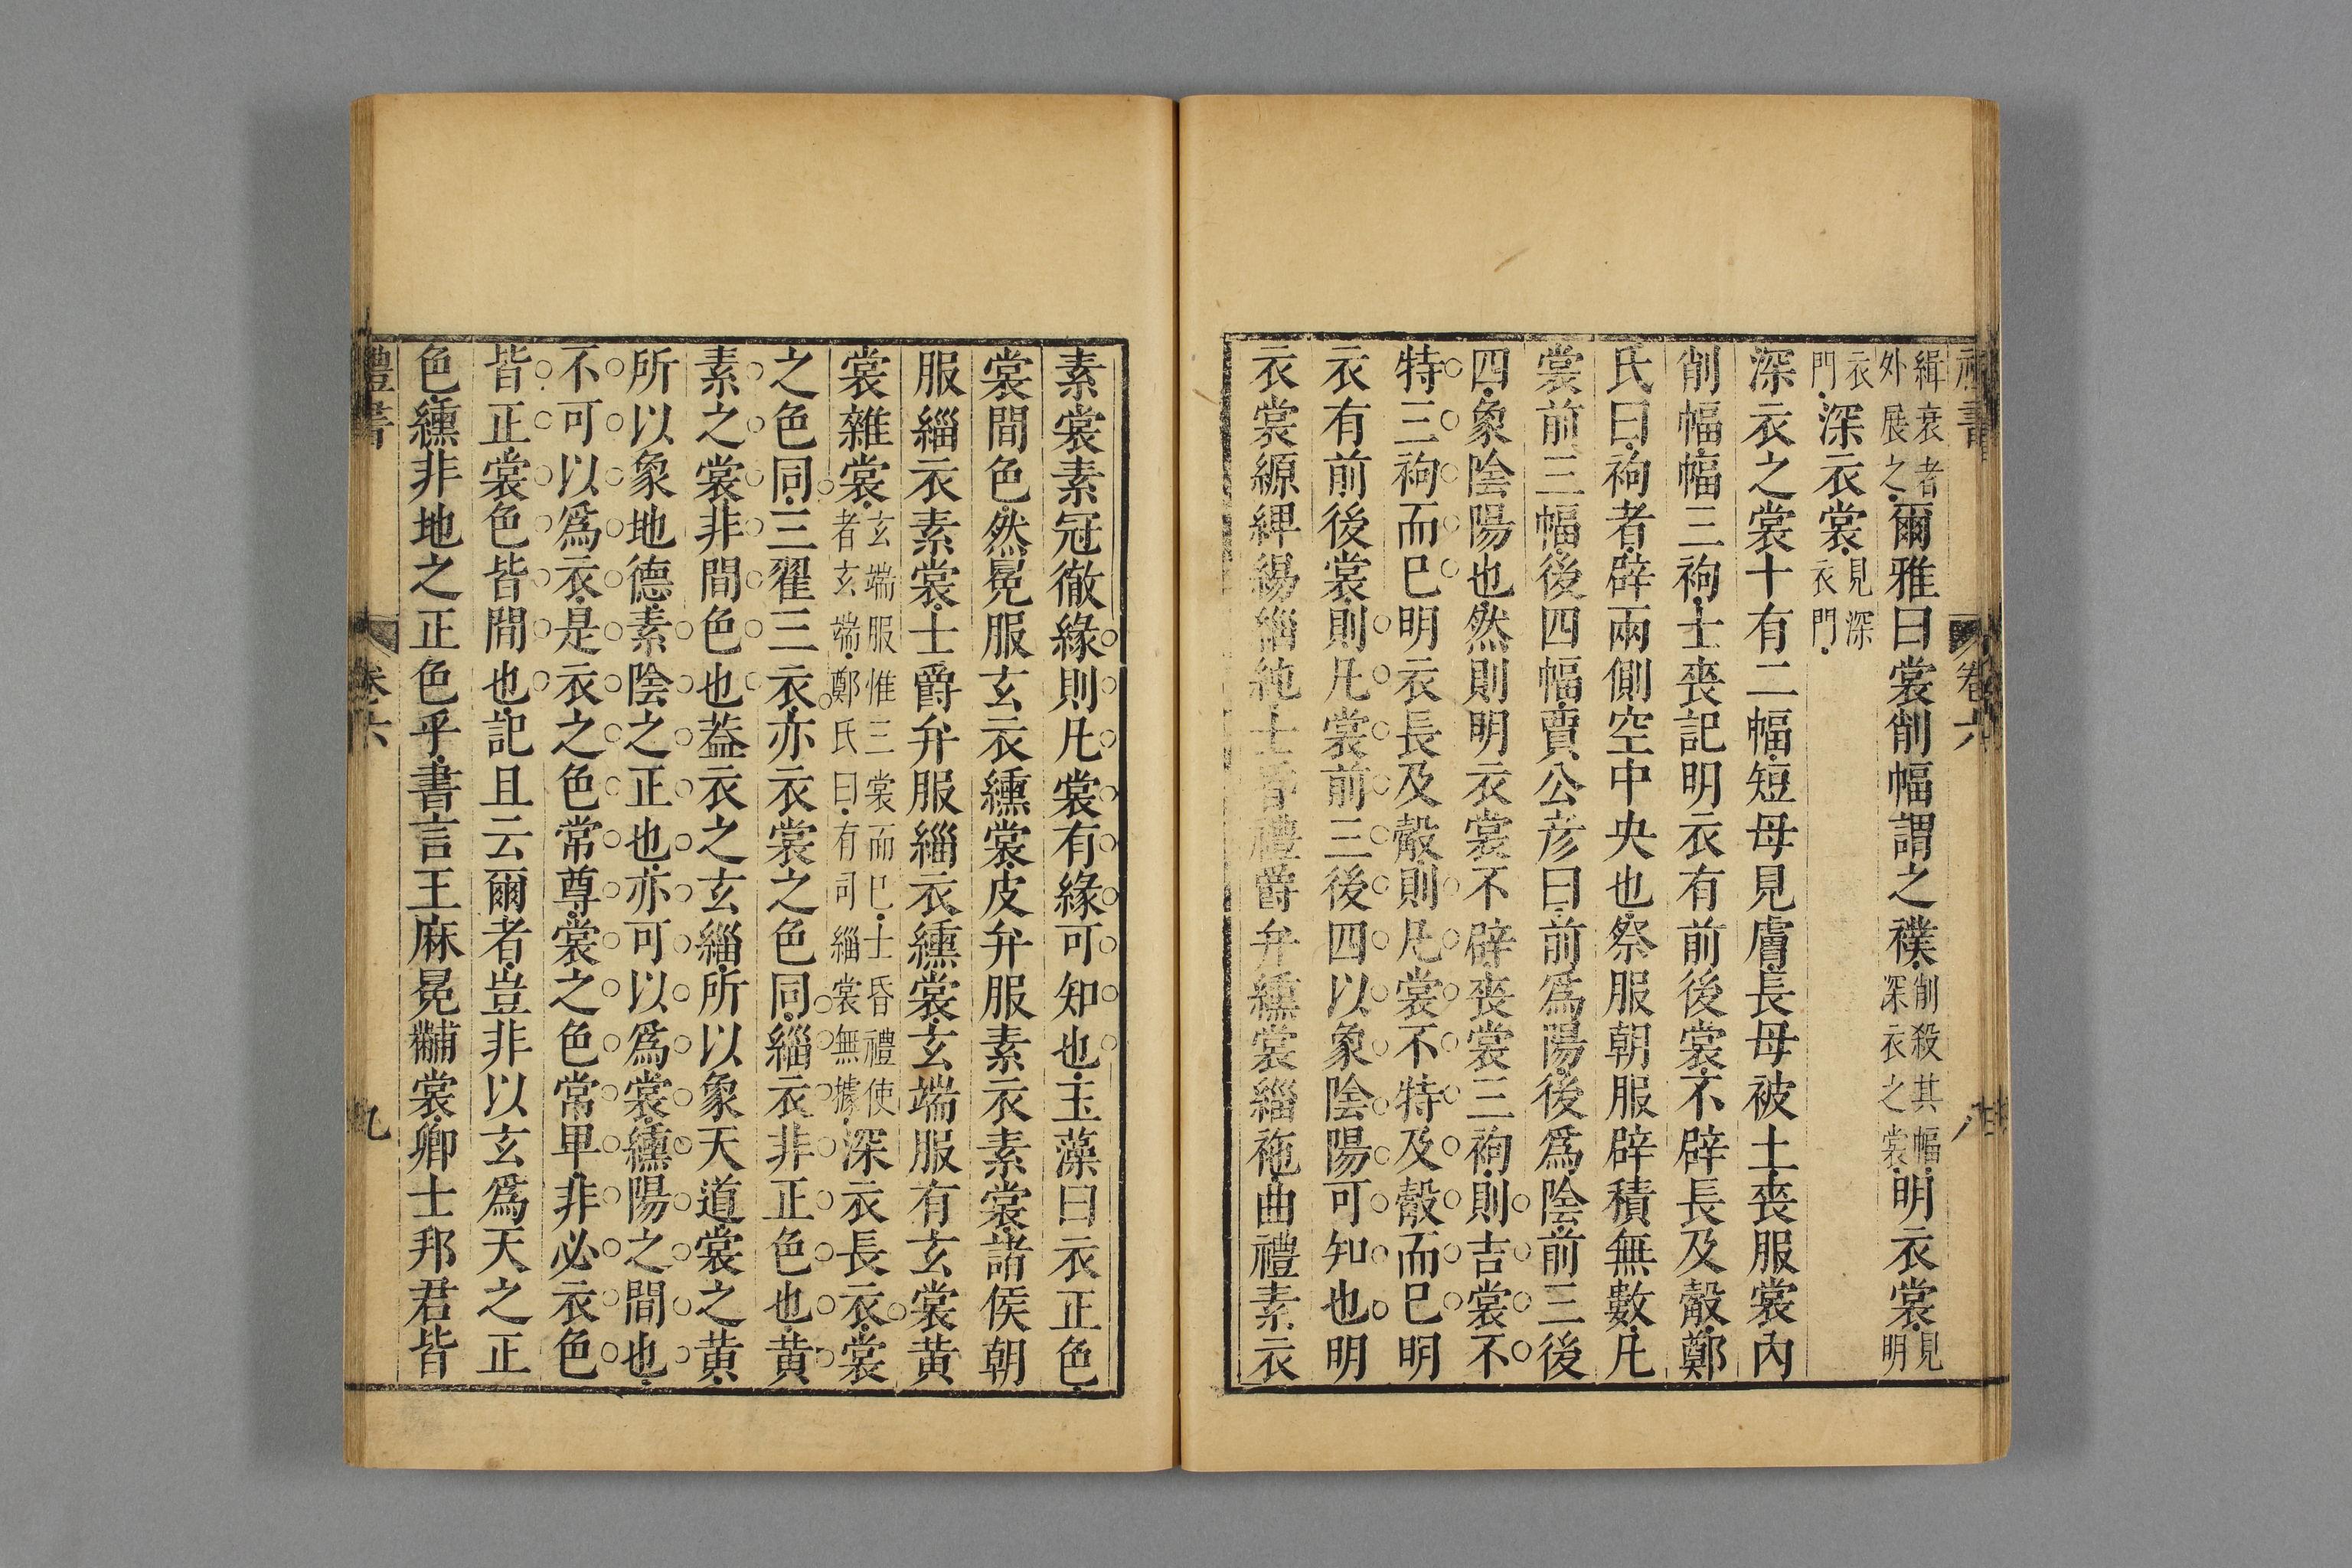 緝衰者外展之爾雅曰裳削幅謂之襥削殺其幅深衣之裳明衣裳見明
衣門深衣裳見深衣門
深衣之裳十有二幅短毋見膚長毋被土喪服裳內
削幅幅三袧士喪記明衣有前後裳不辟長及觳鄭
氏曰袧者辟兩側空中央也祭服朝服辟積無數凡
裳前三幅後四幅賈公彥曰前爲陽後爲陰前三後
四象陰陽也然則明衣裳不辟喪裳三袧則吉裳不
特三袧而已明衣長及觳則凡裳不特及觳而已明
衣有前後裳則凡裳前三後四以象陰陽可知也明
衣裳縓綼緆緇純士昏禮爵弁纁裳緇袘曲禮素衣
素裳素冠徹緣則凡裳有緣可知也玉藻曰衣正色
裳間色然冕服玄衣纁裳皮弁服素衣素裳諸侯朝
服緇衣素裳士爵弁服緇衣纁裳玄端服有玄裳黃
裳雜裳玄端服惟三裳而已士昏禮使者玄端鄭氏曰有司緇裳無據深衣長衣裳
之色同三翟三衣亦衣裳之色同緇衣非正色也黃
素之裳非間色也蓋衣之玄緇所以象天道裳之黃
所以象地德素陰之正也亦可以爲裳纁陽之間也
不可以爲衣是衣之色常尊裳之色常卑非必衣色
皆正裳色皆間也記且云爾者豈非以玄爲天之正
色纁非地之正色乎書言王麻冕黼裳卿士邦君皆
禮書 卷六 九